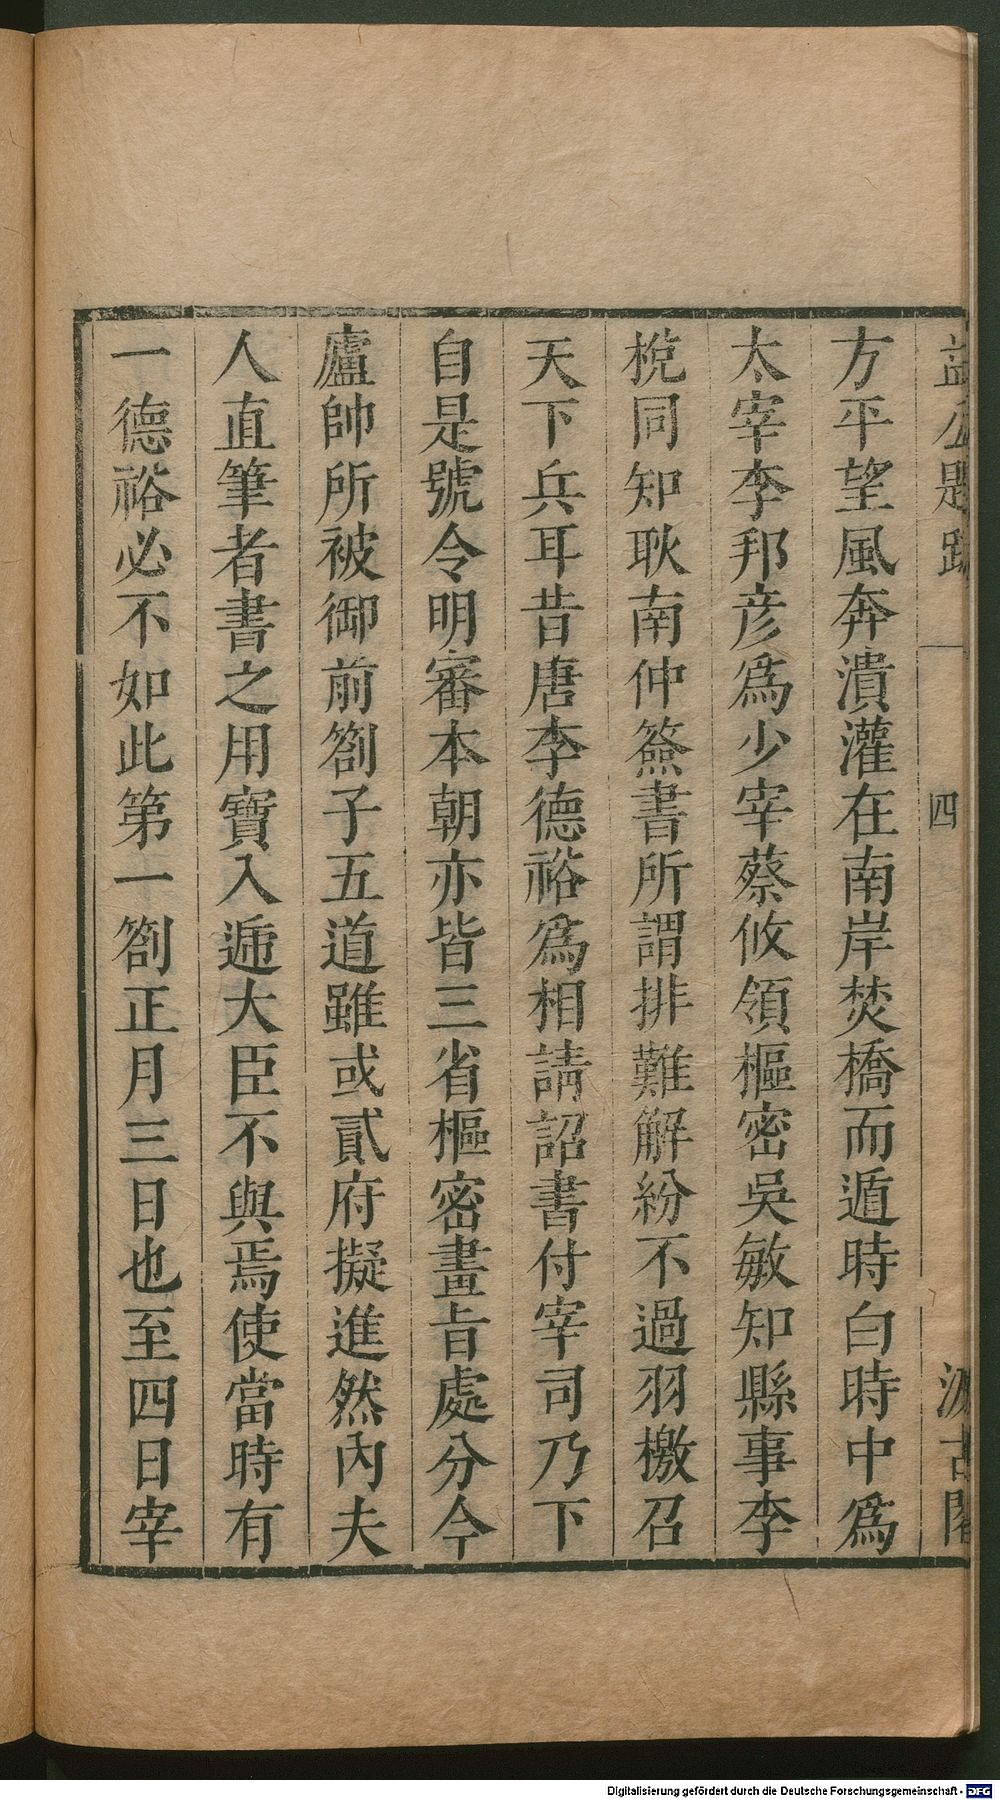 益公題跋 四 汲古閣
方平望風奔潰灌在南岸焚橋而遁時白時中爲
太宰李邦彦爲少宰蔡攸領樞密吳敏知縣事李
梲同知耿南仲簽書所謂排難解紛不過羽檄召
天下兵耳昔唐李德裕爲相請詔書付宰司乃下
自是號令明審本朝亦皆三省樞密畫旨處分今
廬帥所被御前劄子五道雖或貳府擬進然內夫
人直筆者書之用寶入遞大臣不與焉使當時有
一德裕必不如此第一劄正月三日也至四日宰
Digitalisierung gefördert durch die Deutsche Forschungsgemeinschaft - DFG